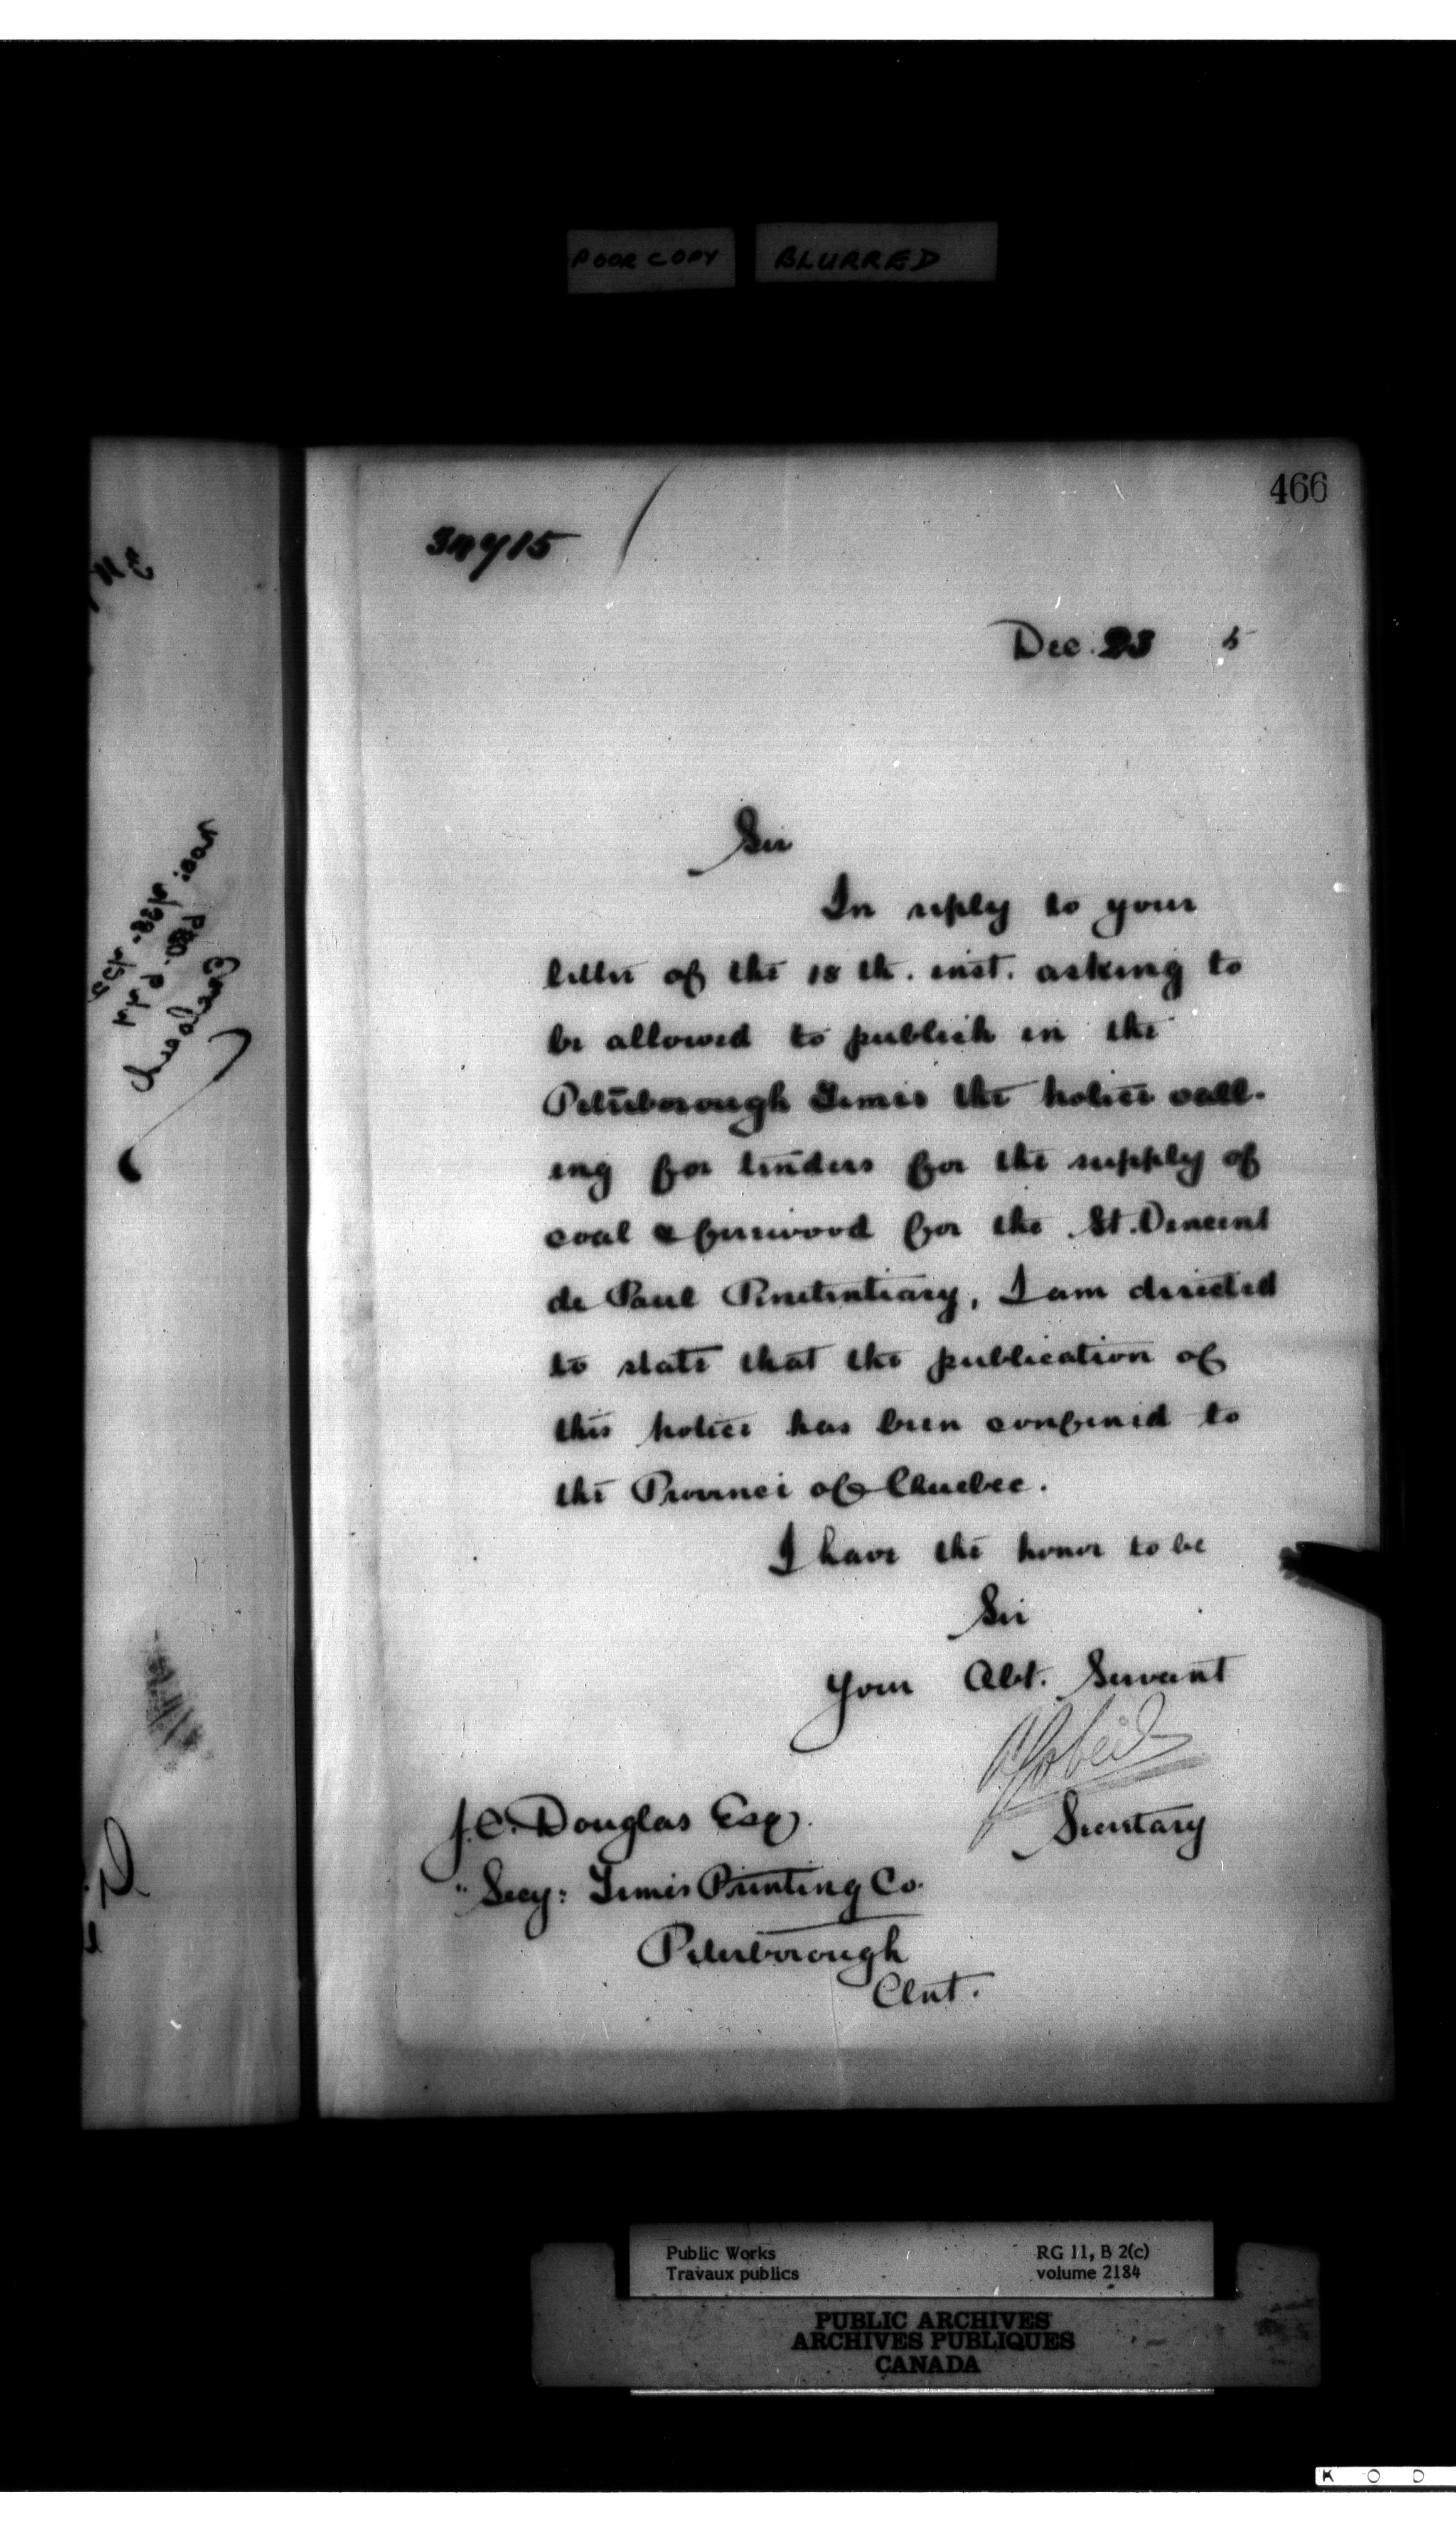 POOR COPY BLURRED
466
Dec. 23 5
Sir
In reply to your
letter of the 18 th. inst. asking to
be allowed to publish in the
Peterborough Times the notice call-
ing for tenders for the supply of
coal & firewood for the St. Vincent
de Paul Penitentiary, I am directed
to state that the publication of
this notice has been confined to
the Province of Quebec.
I have the honor to be
Sir
Your Obt. Servant
AGobeil
Secretary
J.C. Douglas Esq.
Secy: Times Printing Co.
Peterborough
Ont.
Public Works RG 11, B 2(c)
Travaux publics volume 2184
PUBLIC ARCHIVES
ARCHIVES PUBLIQUES
CANADA
K O D